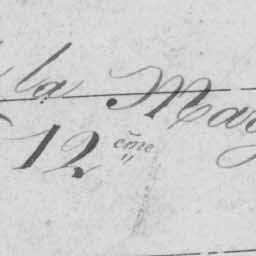 la Mag
12 ème "